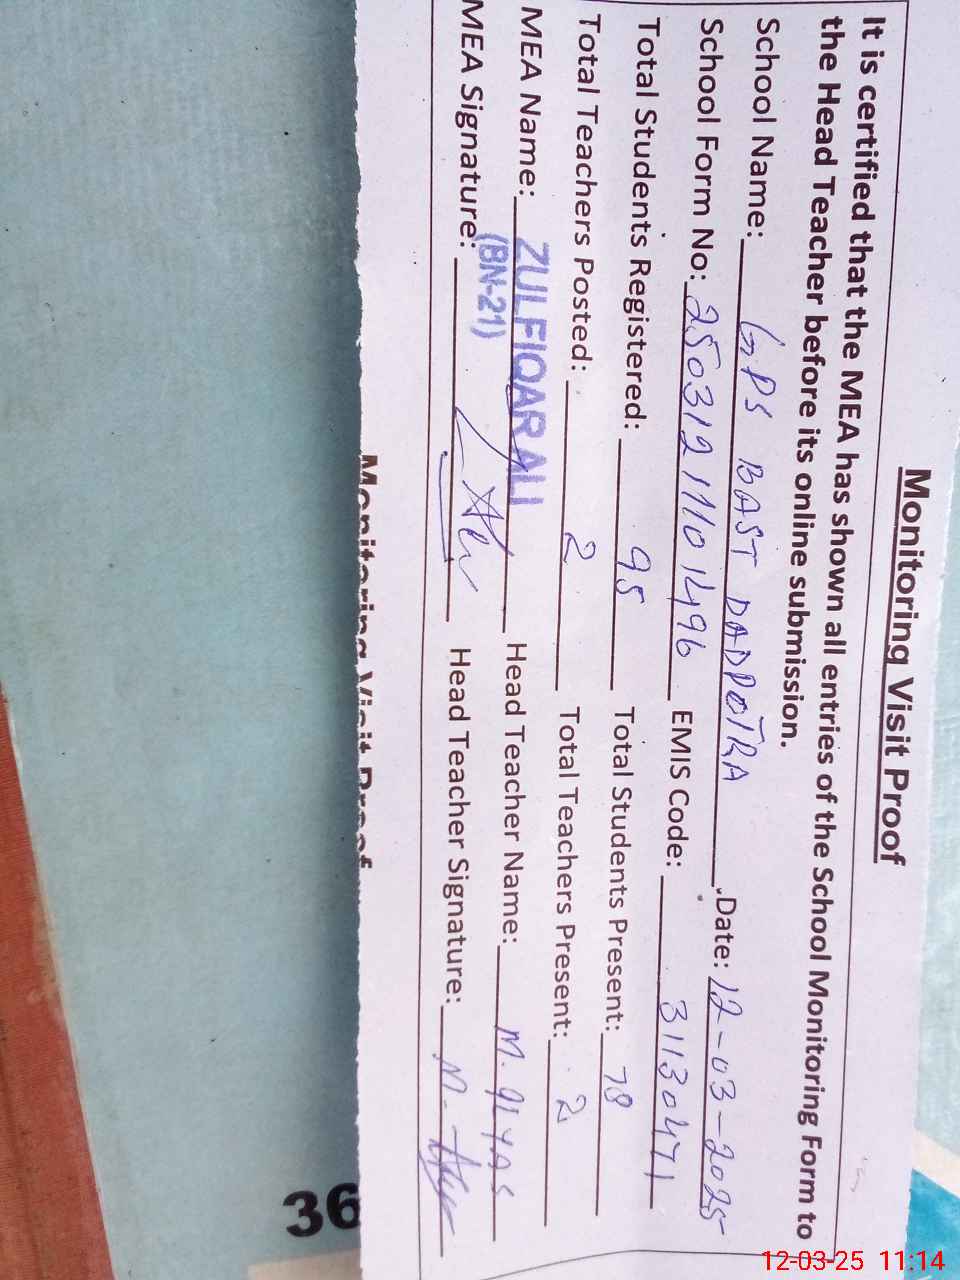 Monitoring Visit Proof
It is certified that the MEA has shown all entries of the School Monitoring Form to
the Head Teacher before its online submission.
School Name: GPS BAST DADPOTRA Date: 12-03-2025
School Form No: 250312111101496 EMIS Code: 31130471
Total Students Registered: 95 Total Students Present: 78
Total Teachers Posted: 2 Total Teachers Present: 2
MEA Name: ZULFIQAR ALI Head Teacher Name: M. ILYAS
(BN-21)
MEA Signature: Head Teacher Signature:
Monitoring Visit Proof
36
12-03-25 11:14